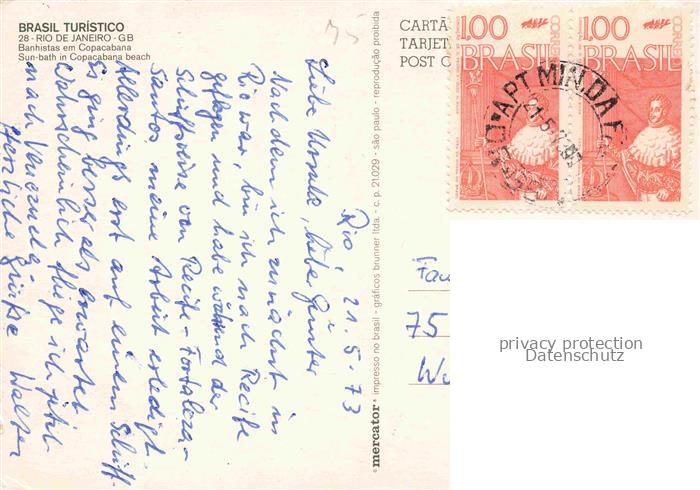 BRASIL TURÍSTICO
28 - RIO DE JANEIRO - GB
Banhistas em Copacabana
Sun-bath in Copacabana beach
75
Rio 21.5.73
Liebe Ursula, lieber Günter
Nachdem ich zunächst in
Rio war, bin ich nach Recife
geflogen und habe während der
Schiffsreise von Recife-Fortaleza-
Santos meine Arbeit erledigt.
Allerdings erst auf einem Schiff.
Es ging besser als erwartet.
Wahrscheinlich fliege ich jetzt
nach Venezuela.
Herzliche Grüße Walter
mercator impresso no brasil - gráficos brunner ltda. - c. p. 21.029 - são paulo - reprodução proibida
CARTÃ
TARJET
POST C
1,00 CORREIO
BRASIL
1,00 CORREIO
BRASIL
APT MIN.DA F
21.5.
Fa
75
W
privacy protection
Datenschutz